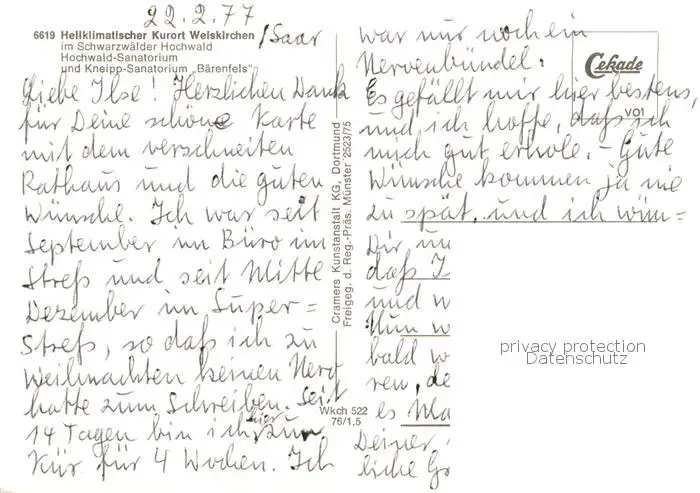 22.2.77
6619 Heilklimatischer Kurort Weiskirchen /Saar
im Schwarzwälder Hochwald
Hochwald-Sanatorium
und Kneipp-Sanatorium „Bärenfels"
Liebe Ilse! Herzlichen Dank
für Deine schöne Karte
mit dem verschneiten
Rathaus und die guten
Wünsche. Ich war seit
September im Büro im
Streß und seit Mitte
Dezember im Super=
Streß, so daß ich zu
Weihnachten keinen Nerv
hatte zum Schreiben. Seit
14 Tagen bin ich hier zur
Kur für 4 Wochen. Ich
Cramers Kunstanstalt KG, Dortmund
Freigeg. d. Reg.-Präs. Münster 2523/75
Wkch 522
76/1,5
war nur noch ein
Nervenbündel.
Es gefällt mir hier bestens,
und ich hoffe, daß ich
mich gut erhole. – Gute
Wünsche kommen ja nie
zu spät, und ich wün=
Dir
daß
und w
Nun w
bald w
ren, de
es
Deiner,
liche
Cekade
VO1
privacy protection
Datenschutz